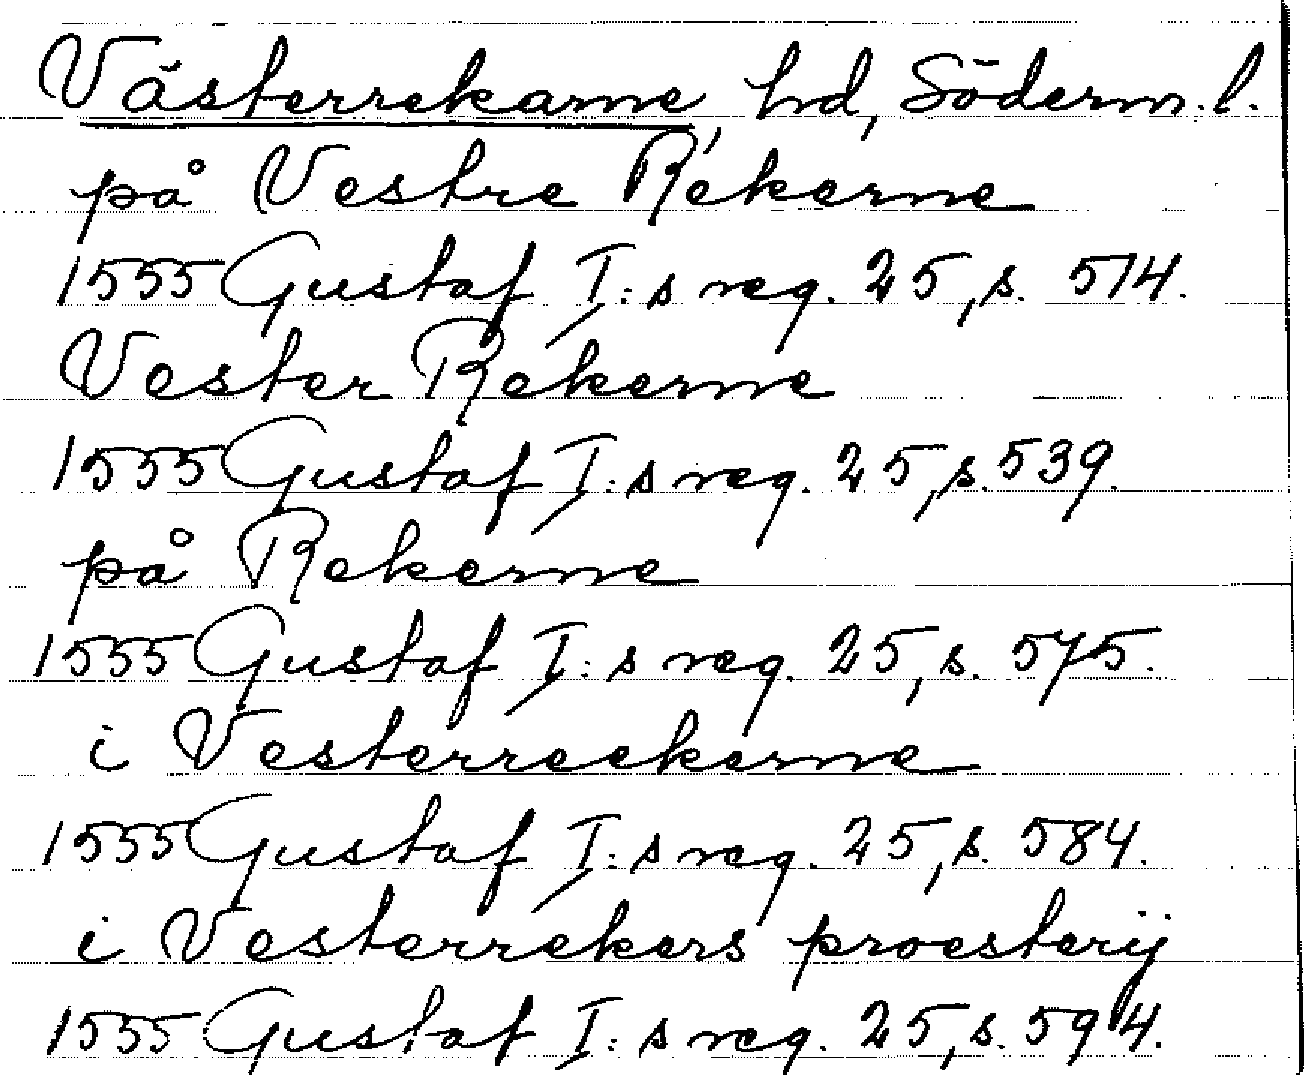 Västerrekarne, hd, Söderm. l.
på Vestre Rekerne
1555 Gustaf I:s reg. 25, s. 514.
Vester Rekerne
1555 Gustaf I:s reg. 25, s. 539.
på Rekerne
1555 Gustaf I:s reg. 25, s. 575.
i Vesterreekerne
1555 Gustaf I:s reg. 25, s. 584.
i Vesterrekers proesterij
1555 Gustaf I:s reg. 25, s. 594.